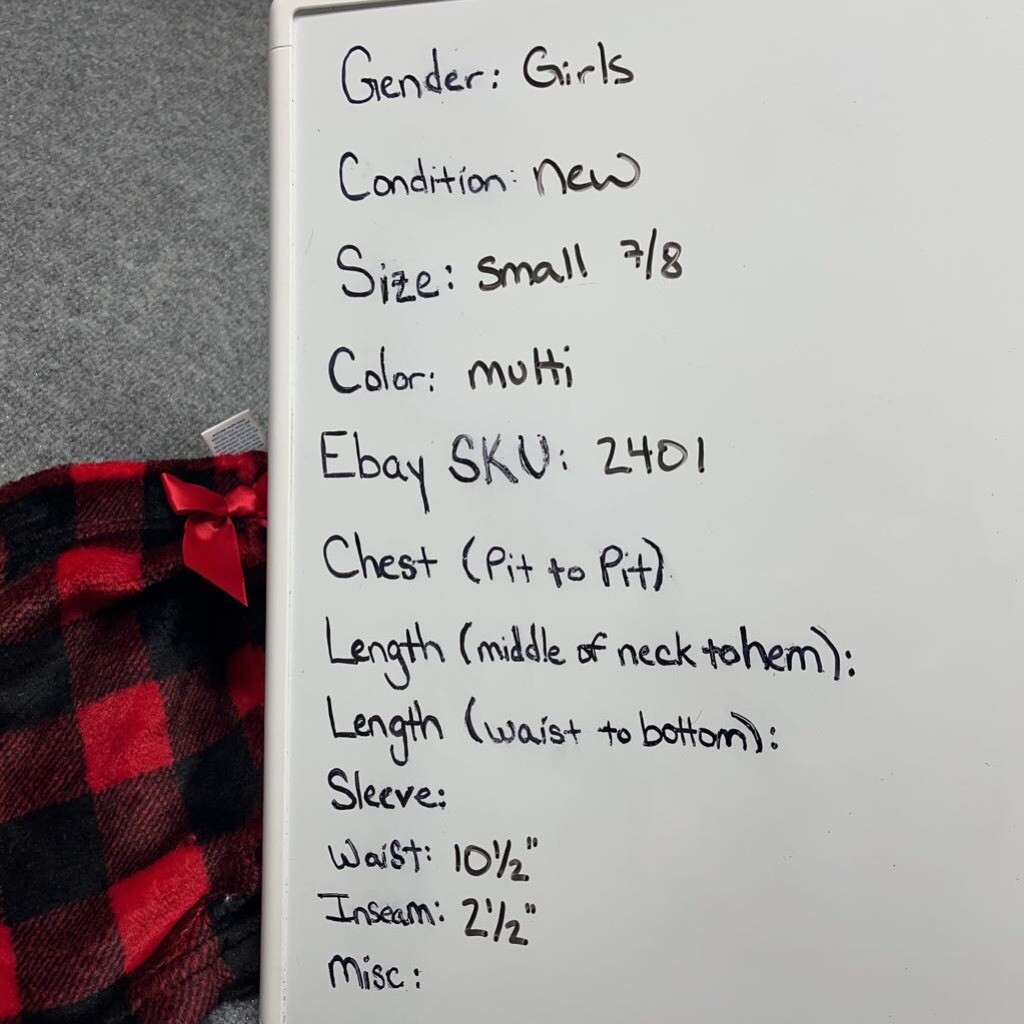 Gender: Girls
Condition: new
Size: small 7/8
Color: multi
Ebay SKU: 2401
Chest (Pit to Pit)
Length (middle of neck to hem):
Length (waist to bottom):
Sleeve:
Waist: 10 1/2"
Inseam: 2 1/2"
Misc: